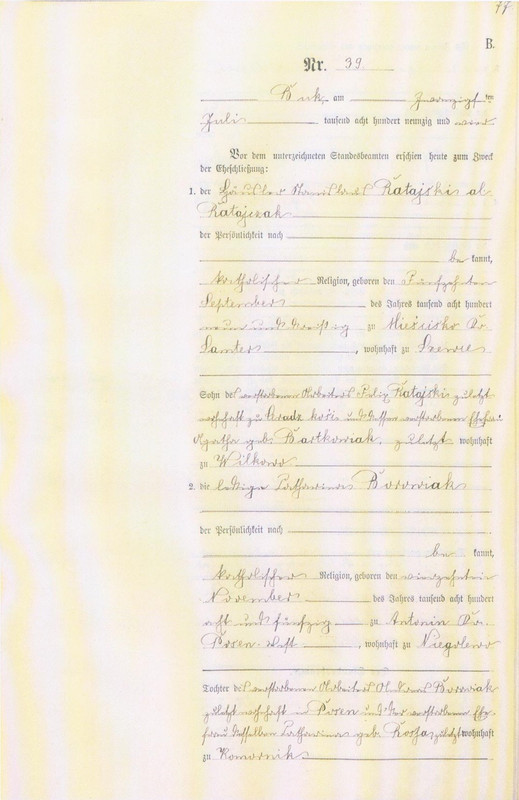 77.
B.
Nr. 39
Buk, am zwanzigsten
Juli tausend acht hundert neunzig und vier
Vor dem unterzeichneten Standesbeamten erschien heute zum Zweck
der Eheschließung:
1. der Häusler Stanislaus Ratajski al
Ratajczak
der Persönlichkeit nach
be kannt,
katholischer Religion, geboren den fünfzehnten
September des Jahres tausend acht hundert
neun und dreißig zu Mieścisko Kr.
Samter, wohnhaft zu Szewce
Sohn des verstorbenen Arbeiters Felix Ratajski zuletzt
wohnhaft zu und dessen verstorbenen Ehefrau
Agatha geb. Bartkowiak, zuletzt wohnhaft
zu Wilkowo
2. die ledige Catharina Borowiak
der Persönlichkeit nach
be kannt,
katholischer Religion, geboren den vierzehnten
November des Jahres tausend acht hundert
acht und fünfzig zu Antonin Kr.
Posen-West, wohnhaft zu Niegolewo
Tochter des verstorbenen Arbeiters Andreas Borowiak
zuletzt wohnhaft in Posen und der verstorbenen Ehe-
frau desselben Catharina geb. Kosza zuletzt wohnhaft
zu Komornik